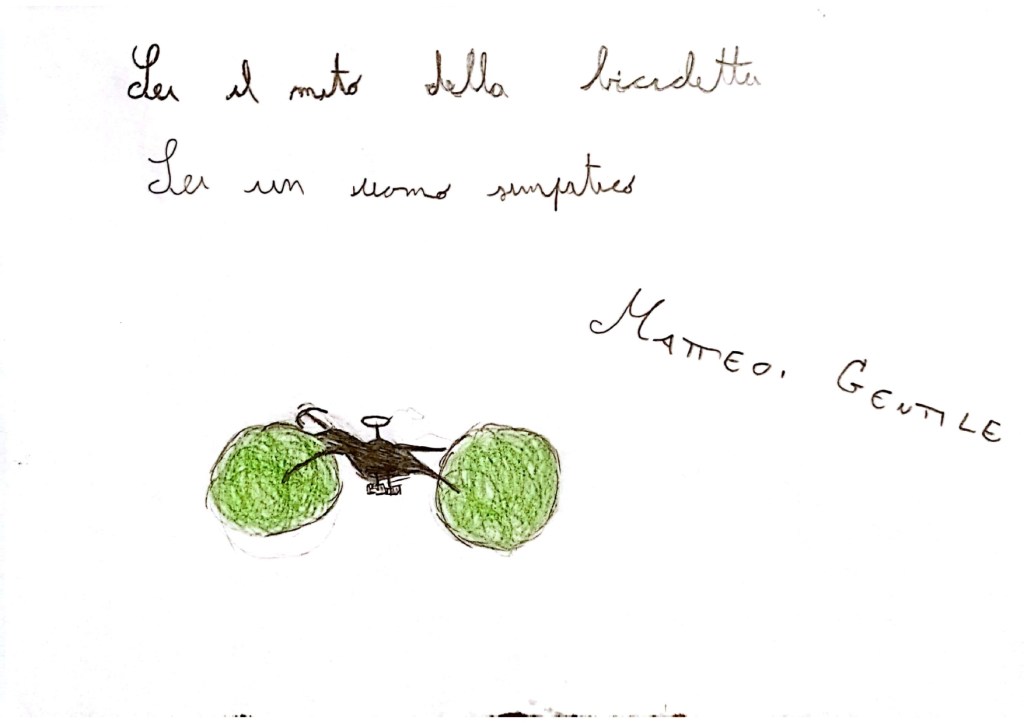 Sei il mito della bicicletta
Sei un uomo simpatico
MATTEO. GENTILE